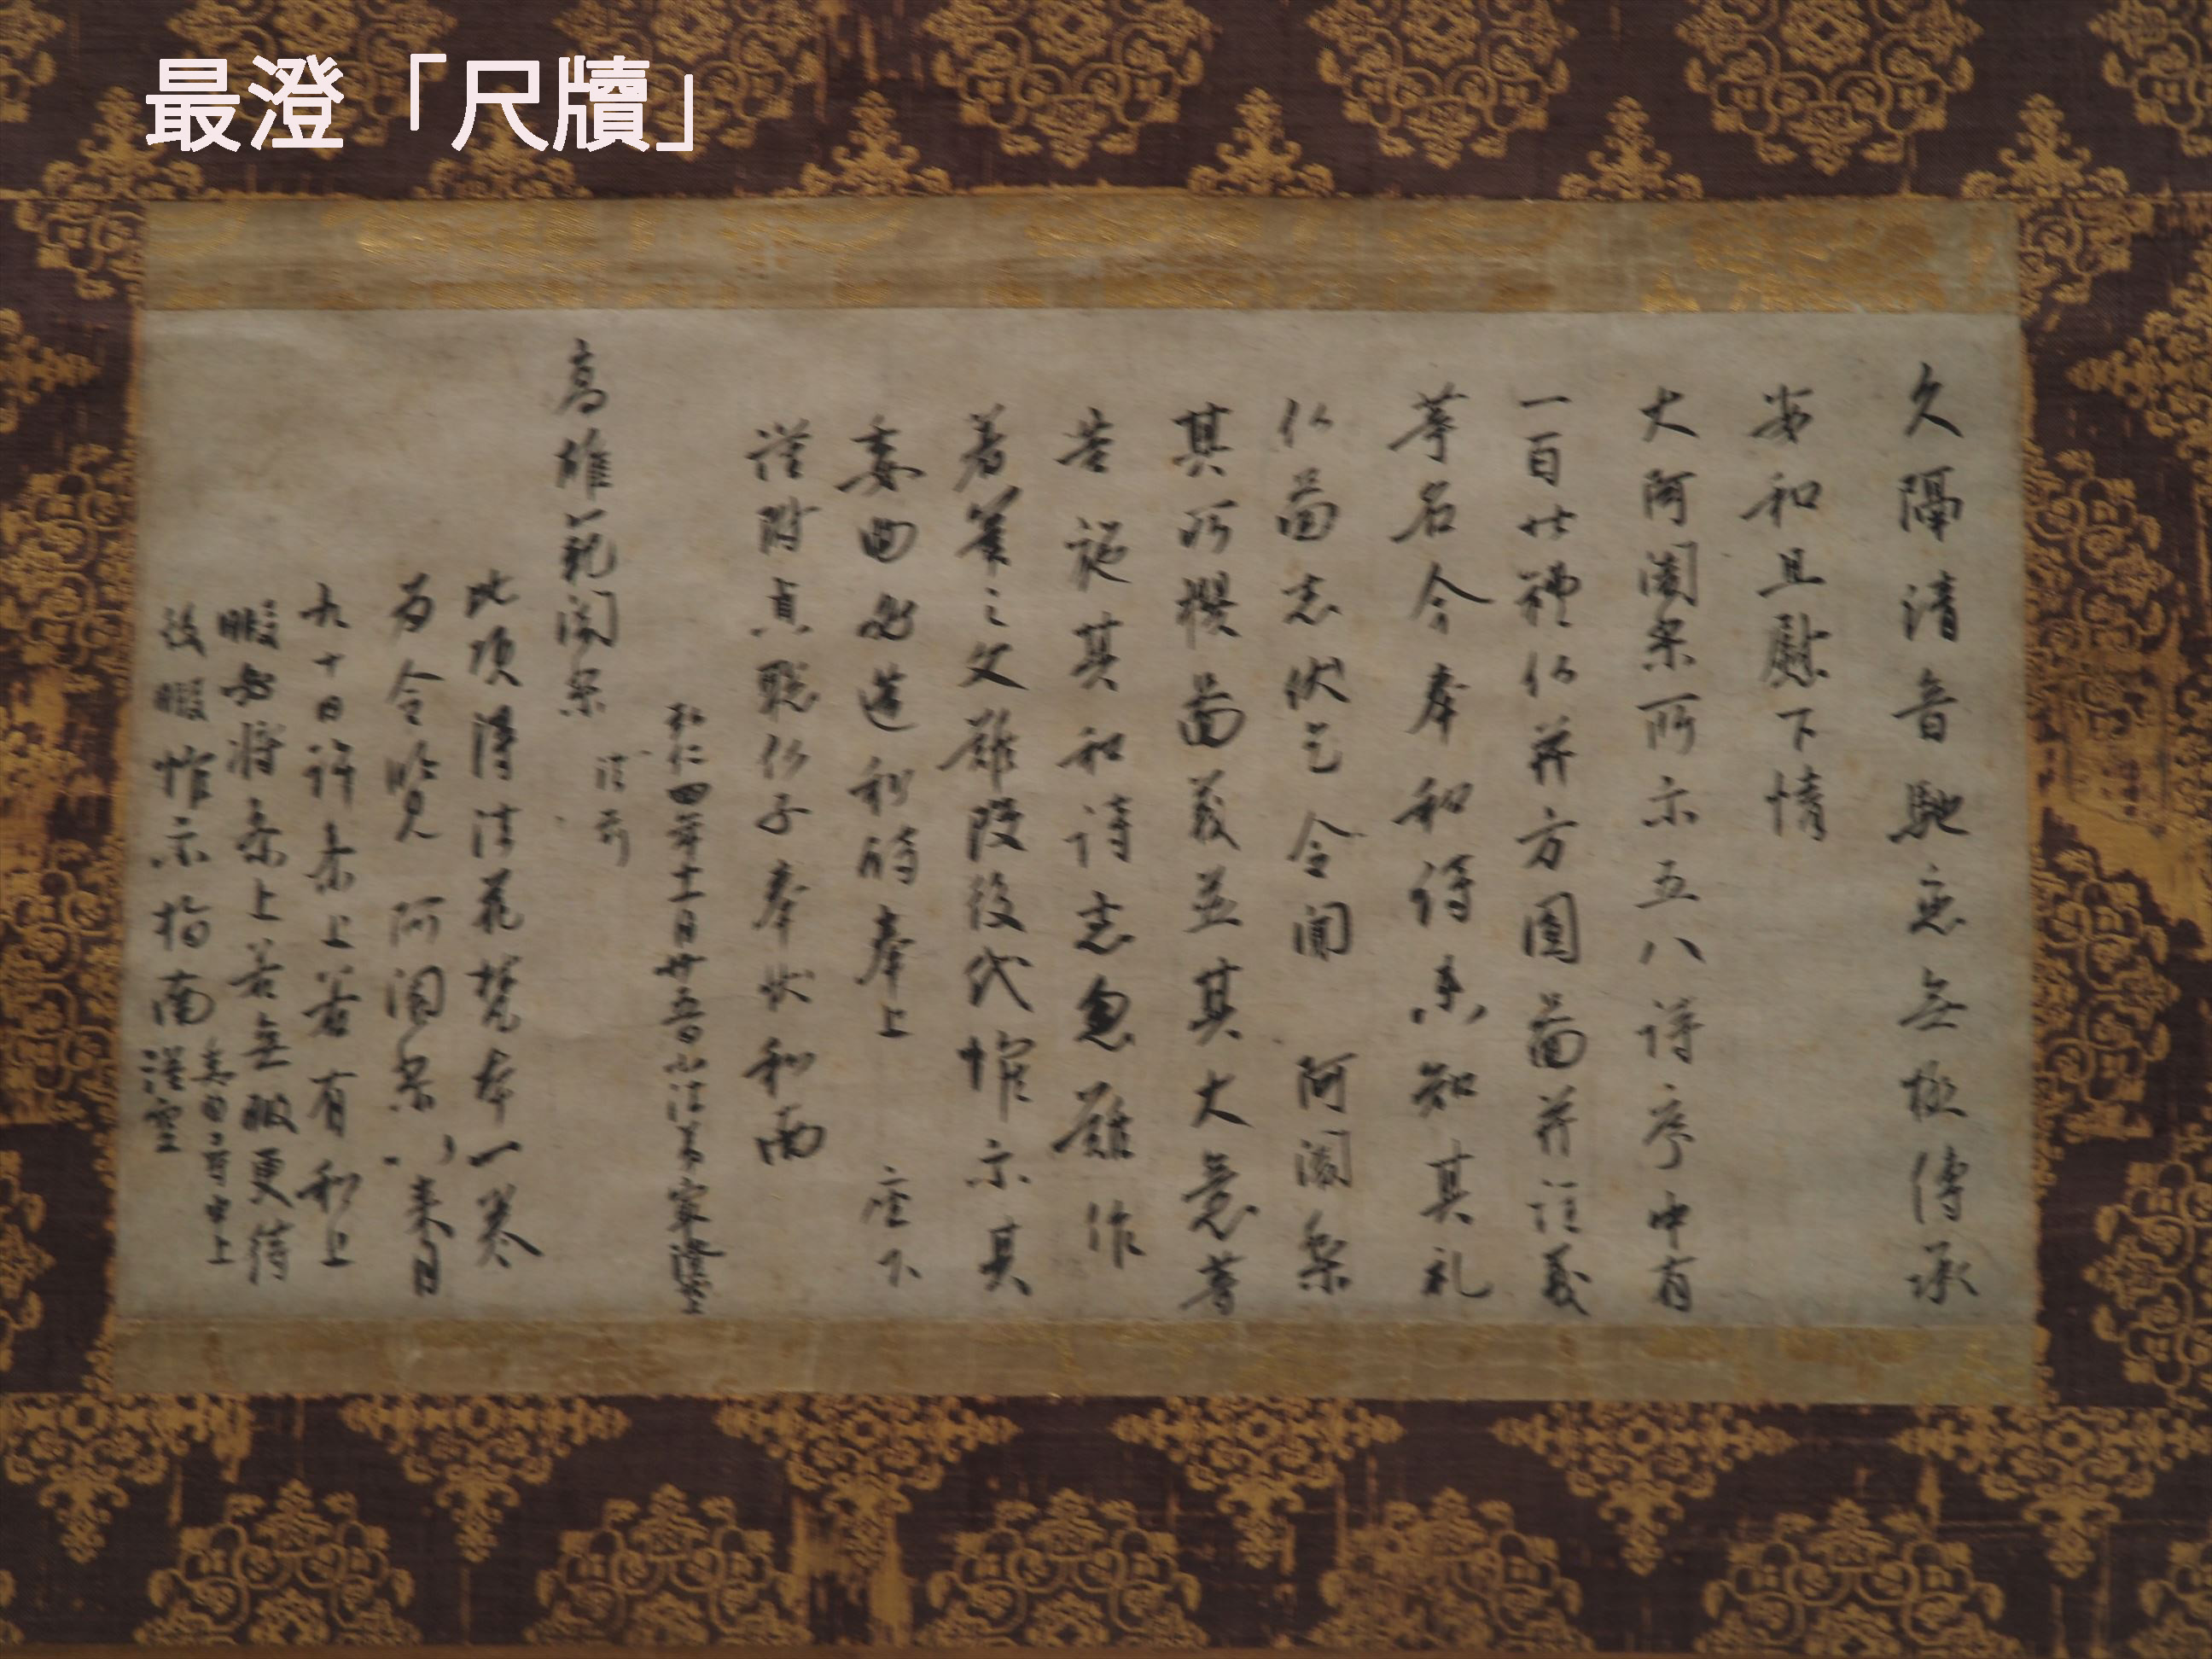 最澄「尺牘」
久隔清音馳恋無極傳承
安和且慰下情
大阿闍梨所示五八詩序中有
一百廿禮仏并方圓圖并註義
等名今奉和詩未知其礼
仏圖志伏乞令聞 阿闍梨
其所撰圖義並其大意等
告施其和詩者忽難作
著筆之文難改後代惟示其
委曲必造和詩奉上 座下
謹附貞聡仏子奉状和南
弘仁四年十一月廿五日小法弟最澄状上
高雄範闍梨
法前
此頃得法花梵本一巻
為令覧阿闍梨以来月
九十日許参上若有和上
暇必将参上若無暇更待
後暇惟示指南
謹空